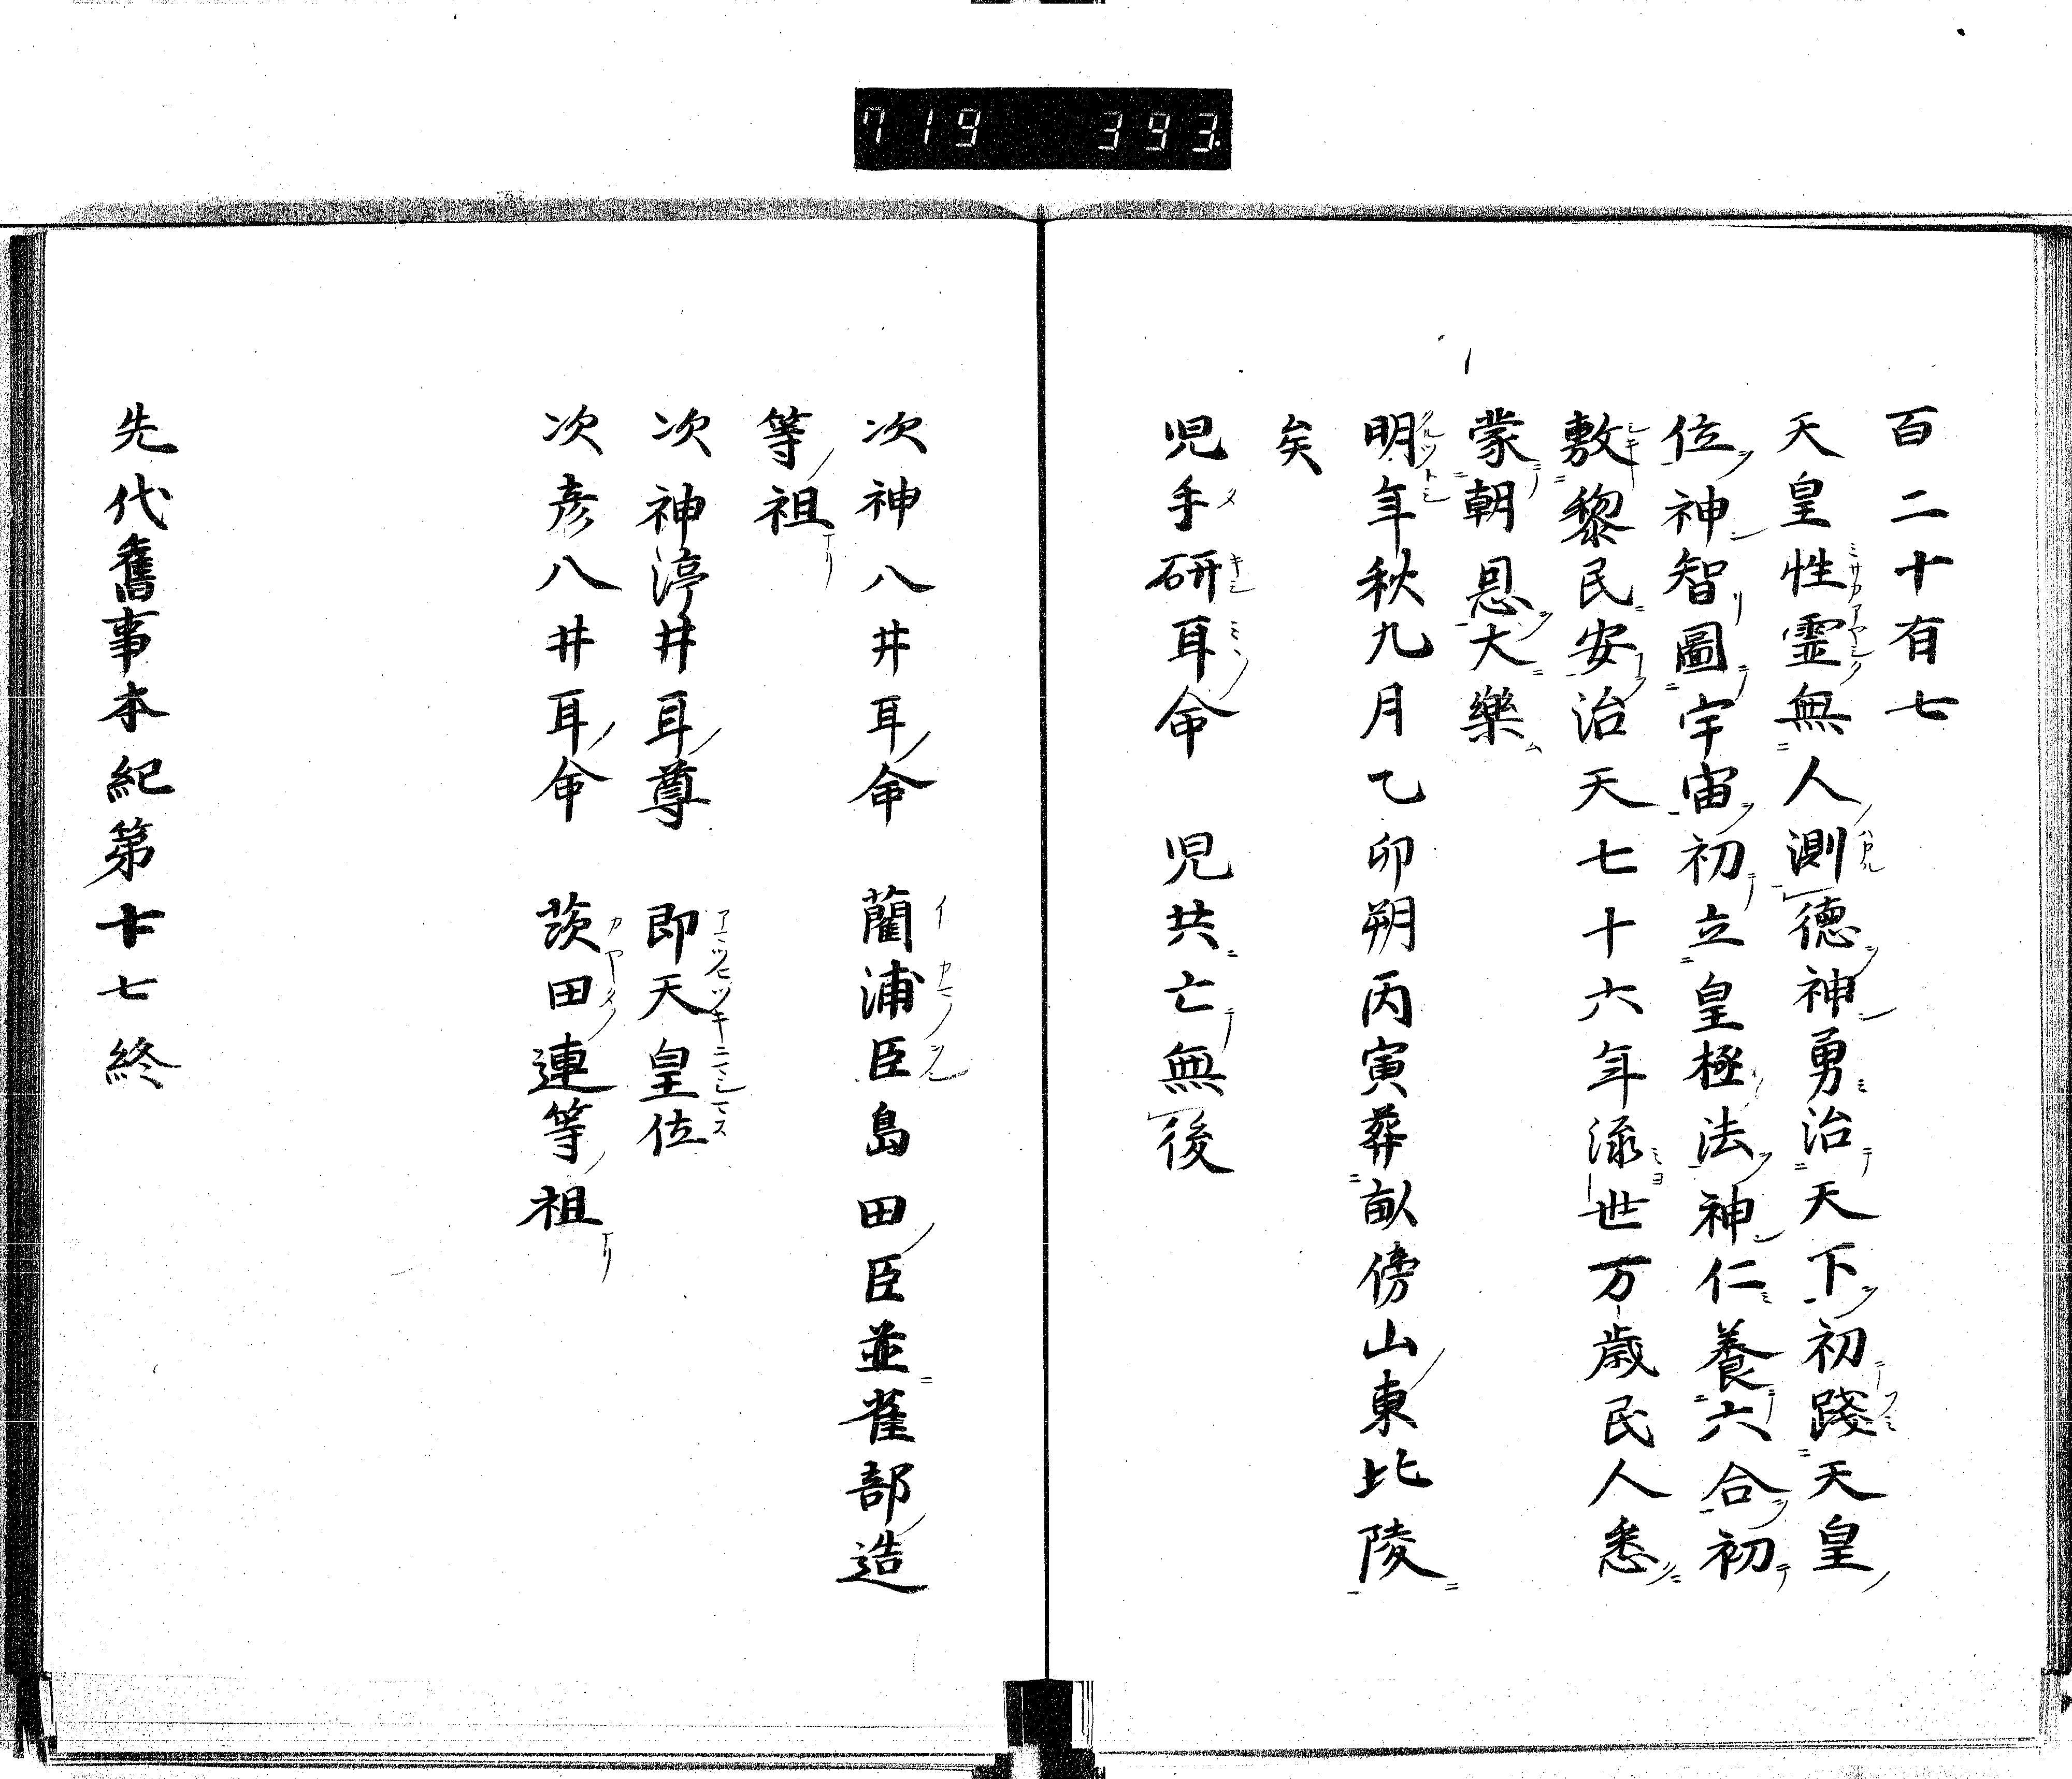 719 393
百二十有七
天皇性霊無人測德神勇治天下初踐天皇
位神智圖宇宙初立皇極法神仁養六合初
敷黎民安治天七十六年添世万歳民人悉
蒙朝恩大樂
明年秋九月乙卯朔丙寅葬畝傍山東比陵
矣
児手研耳命　児共亡無後
次神八井耳命　藺浦臣島田臣並雀部造
等祖
次神渟井耳尊　即天皇位
次彦八井耳命　茨田連等祖
先代舊事本紀第十七終